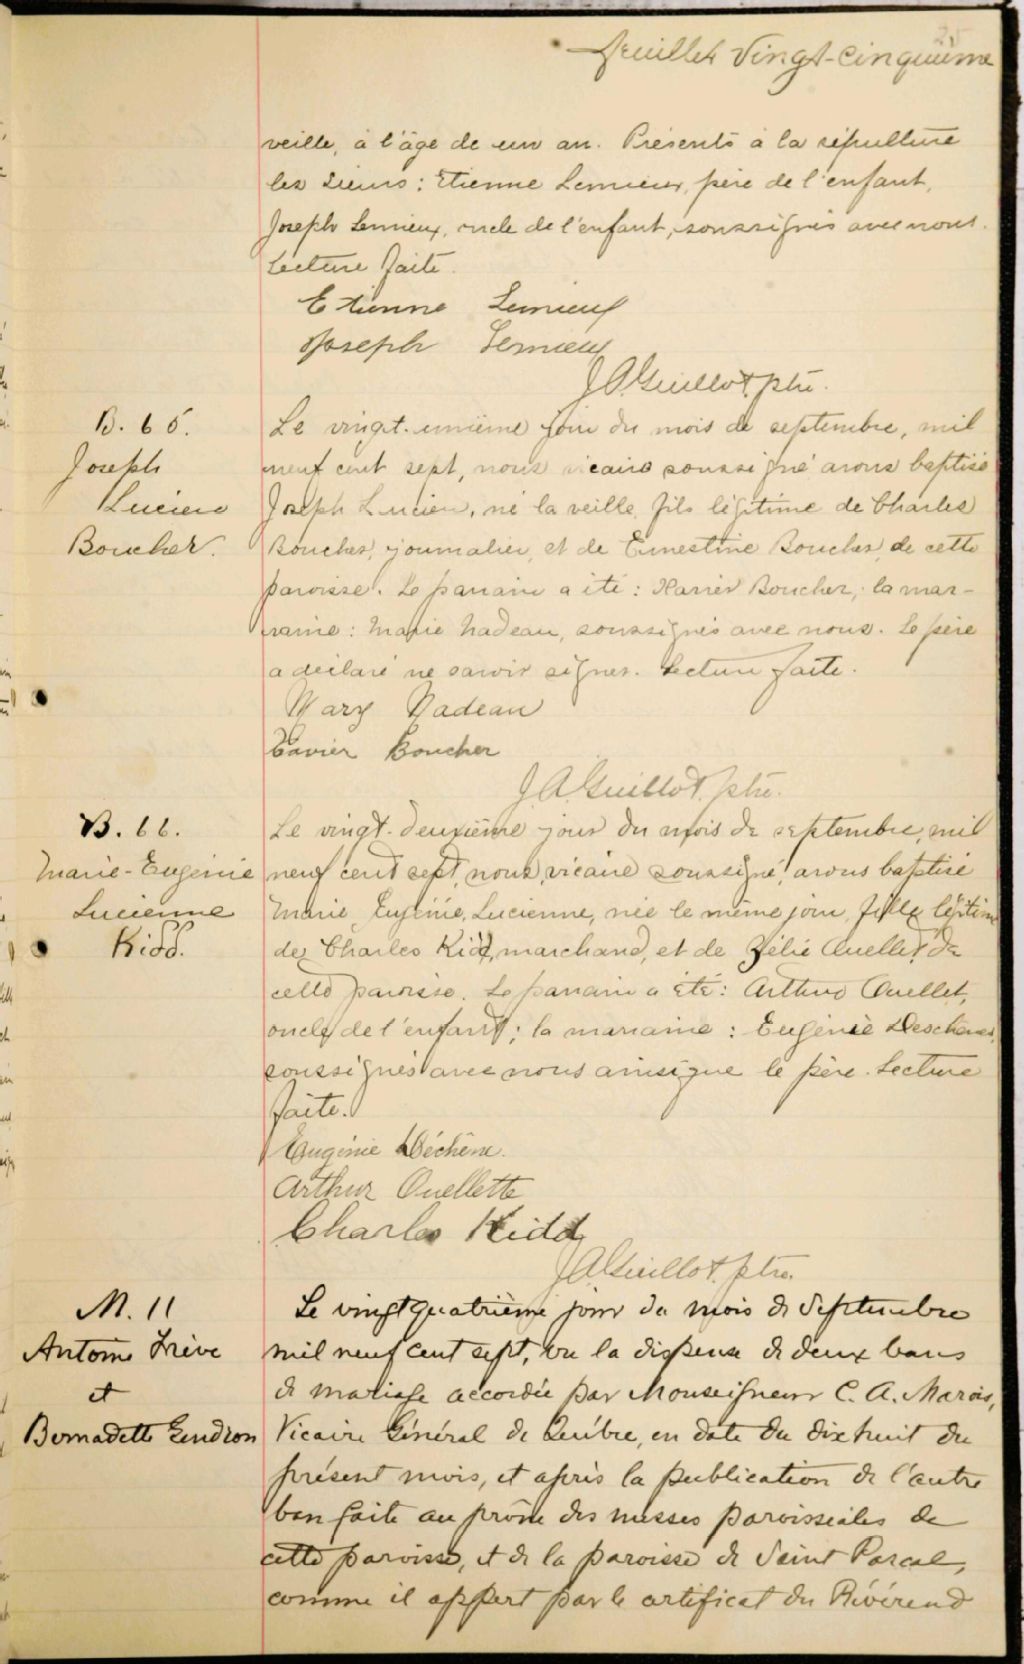 25
feuillet Vingt-cinquième
veille, à l'âge de un an. Présents à la sépulture
les sieurs : Etienne Lemieux, père de l'enfant,
Joseph Lemieux, oncle de l'enfant, soussignés avec nous.
Lecture faite.
Etienne Lemieux
Joseph Lemieux
J A Guillot, ptre.
B. 65.
Joseph
Lucien
Boucher.
Le vingt-unième jour du mois de septembre, mil
neuf cent sept, nous vicaire soussigné avons baptisé
Joseph Lucien, né la veille, fils légitime de Charles
Boucher, journalier, et de Ernestine Boucher, de cette
paroisse. Le parrain a été : Xavier Boucher, la mar-
raine : Marie Nadeau, soussignés avec nous. Le père
a déclaré ne savoir signer. Lecture faite.
Mary Nadeau
Xavier Boucher
J A Guillot, ptre.
B. 66.
Marie-Eugénie
Lucienne
Kidd.
Le vingt-deuxième jour du mois de septembre, mil
neuf cent sept, nous, vicaire soussigné, avons baptisé
Marie, Eugénie, Lucienne, née le même jour, fille légitime
de Charles Kidd, marchand, et de Zélie Ouellet, de
cette paroisse. Le parrain a été : Arthur Ouellet,
oncle de l'enfant ; la marraine : Eugénie Deschênes,
soussignés avec nous ainsi que le père. Lecture
faite.
Eugénie Déchêne.
Arthur Ouellette
Charles Kidd
J A Guillot, ptre.
M. 11
Antoine
et
Bernadette Gendron
Le vingtquatrième jour du mois de Septembre
mil neuf cent sept, vu la dispense de deux bans
de mariage accordée par Monseigneur C. A. Marois,
Vicaire Général de Québec, en date du dixhuit du
présent mois, et après la publication de l'autre
ban faite au prône des messes paroissiales de
cette paroisse, et de la paroisse de Saint Pascal,
comme il appert par le certificat du Révérend